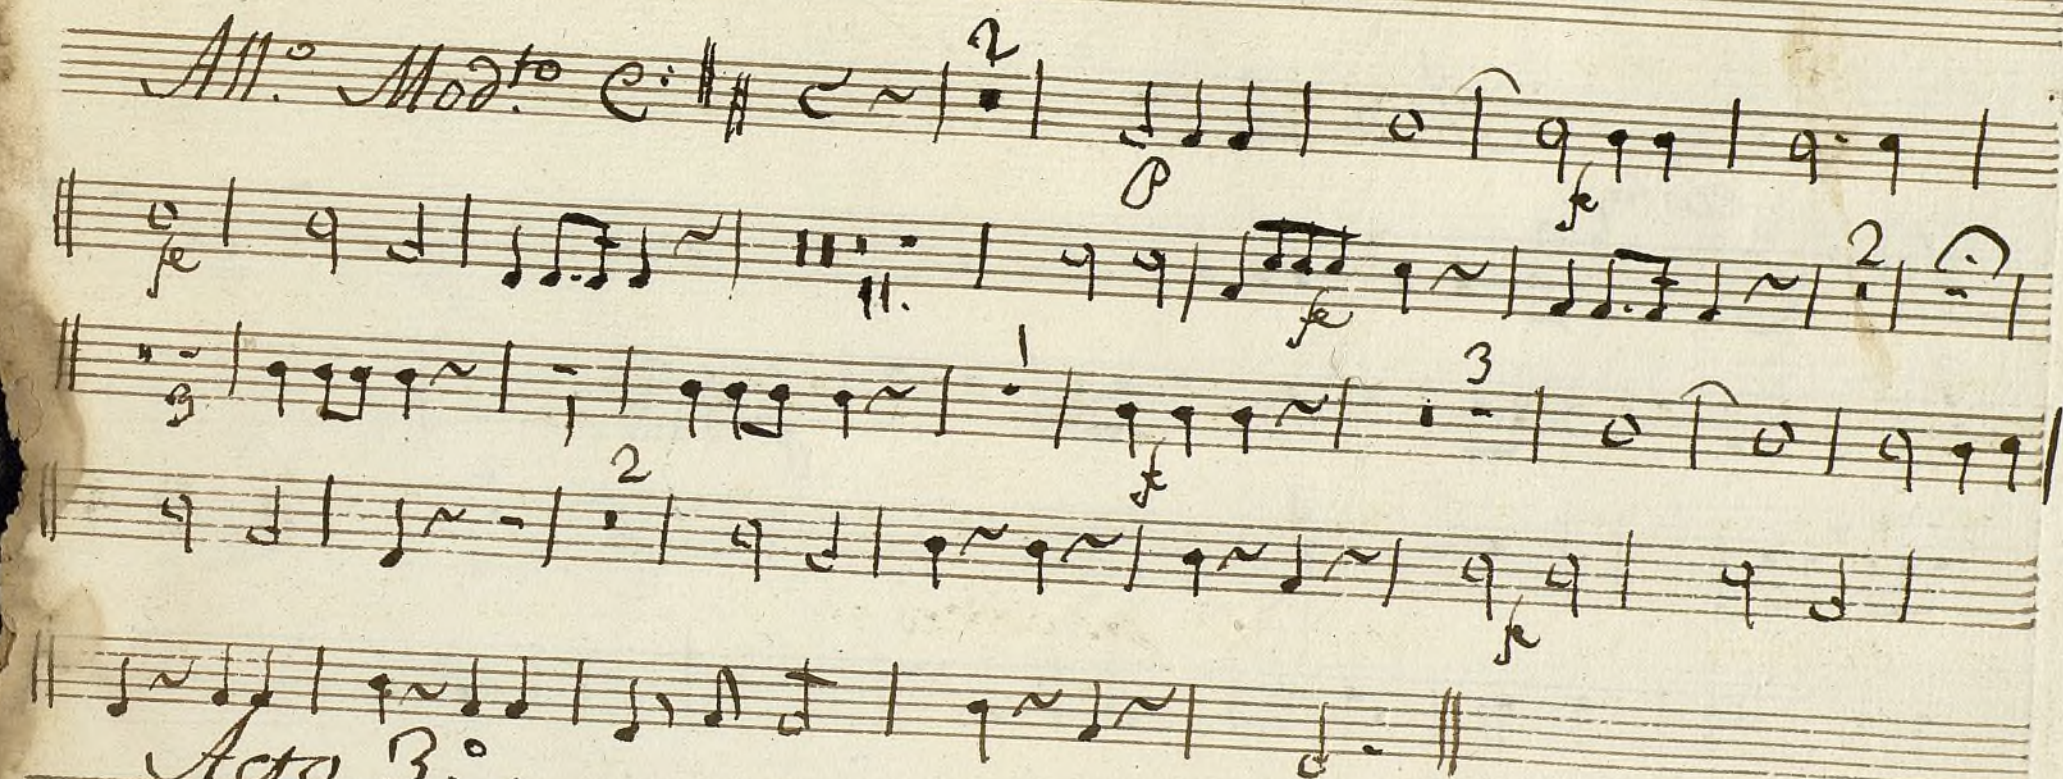 All.º Mod.to
2
P fe
fe 11. fe 2
3 1 1 f 3
2 fe
Acto 3º